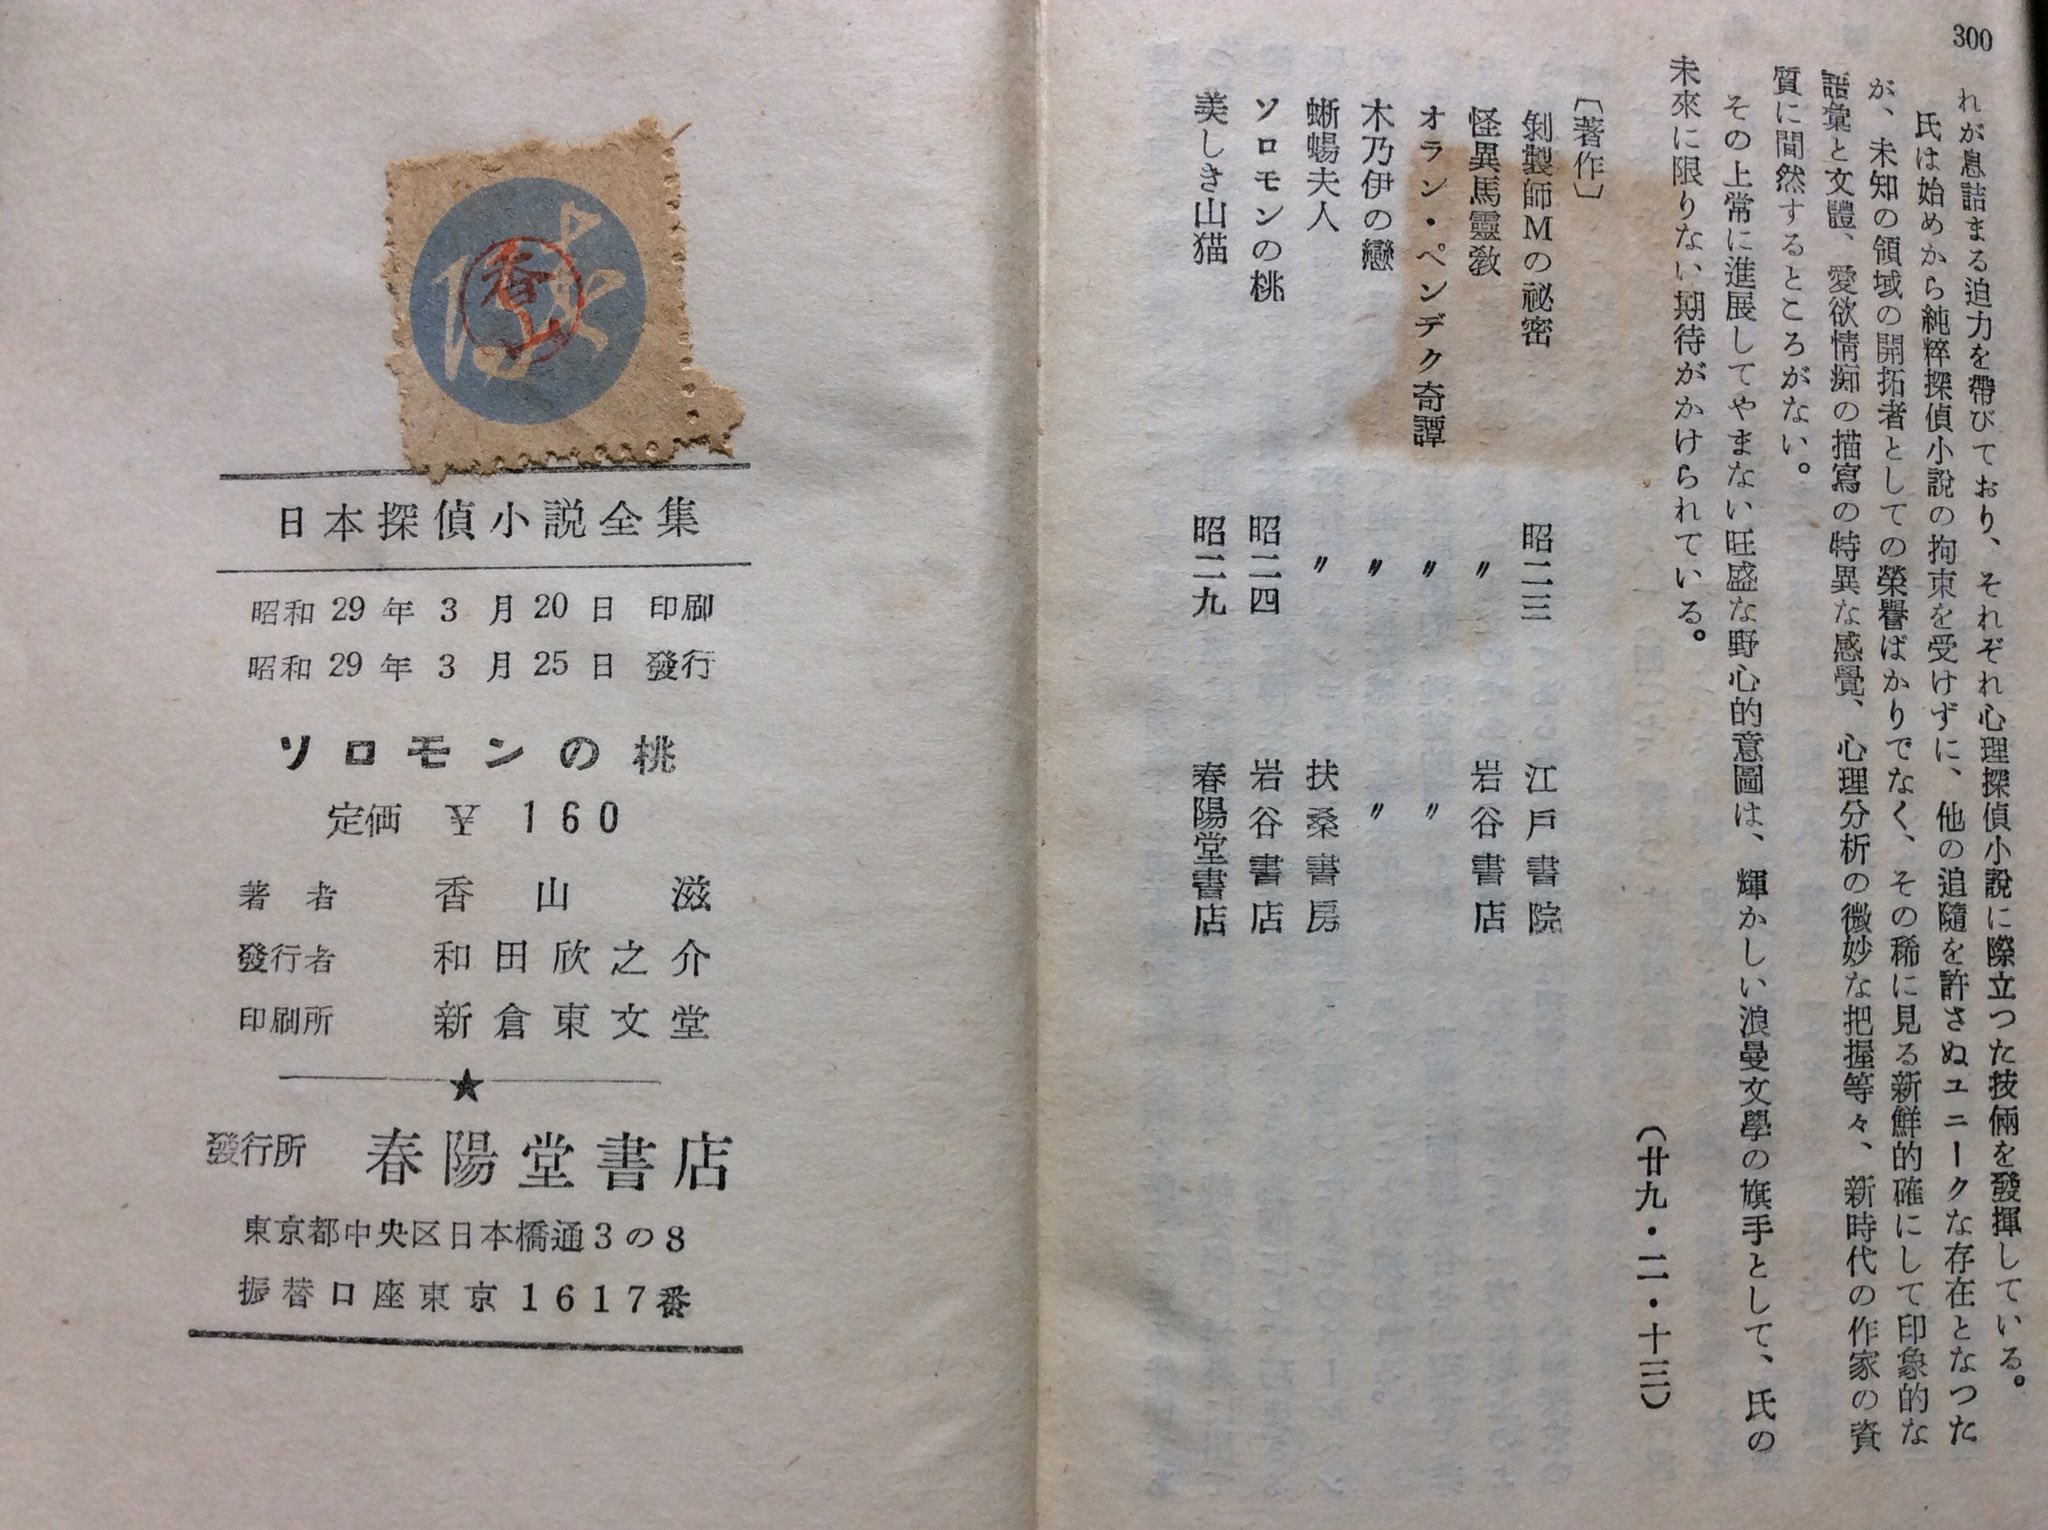 300
れが息詰まる迫力を帶びており、それぞれ心理探偵小說に際立つた技倆を發揮している。
氏は始めから純粹探偵小說の拘束を受けずに、他の追隨を許さぬユニークな存在となつた
が、未知の領域の開拓者としての榮譽ばかりでなく、その稀に見る新鮮的確にして印象的な
語彙と文體、愛欲情痴の描寫の特異な感覺、心理分析の微妙な把握等々、新時代の作家の資
質に間然するところがない。
その上常に進展してやまない旺盛な野心的意圖は、輝かしい浪曼文學の旗手として、氏の
未來に限りない期待がかけられている。
(廿九・二・十三)
〔著作〕
剝製師Mの祕密 昭二三 江戸書院
怪異馬靈敎 〃 岩谷書店
オラン・ペンデク奇譚 〃 〃
木乃伊の戀 〃 〃
蜥蜴夫人 〃 扶桑書房
ソロモンの桃 昭二四 岩谷書店
美しき山猫 昭二九 春陽堂書店
陽
香山
日本探偵小説全集
昭和29年3月20日 印刷
昭和29年3月25日 發行
ソロモンの桃
定価 ¥160
著者 香山滋
發行者 和田欣之介
印刷所 新倉東文堂
★
發行所 春陽堂書店
東京都中央区日本橋通3の8
振替口座東京1617番